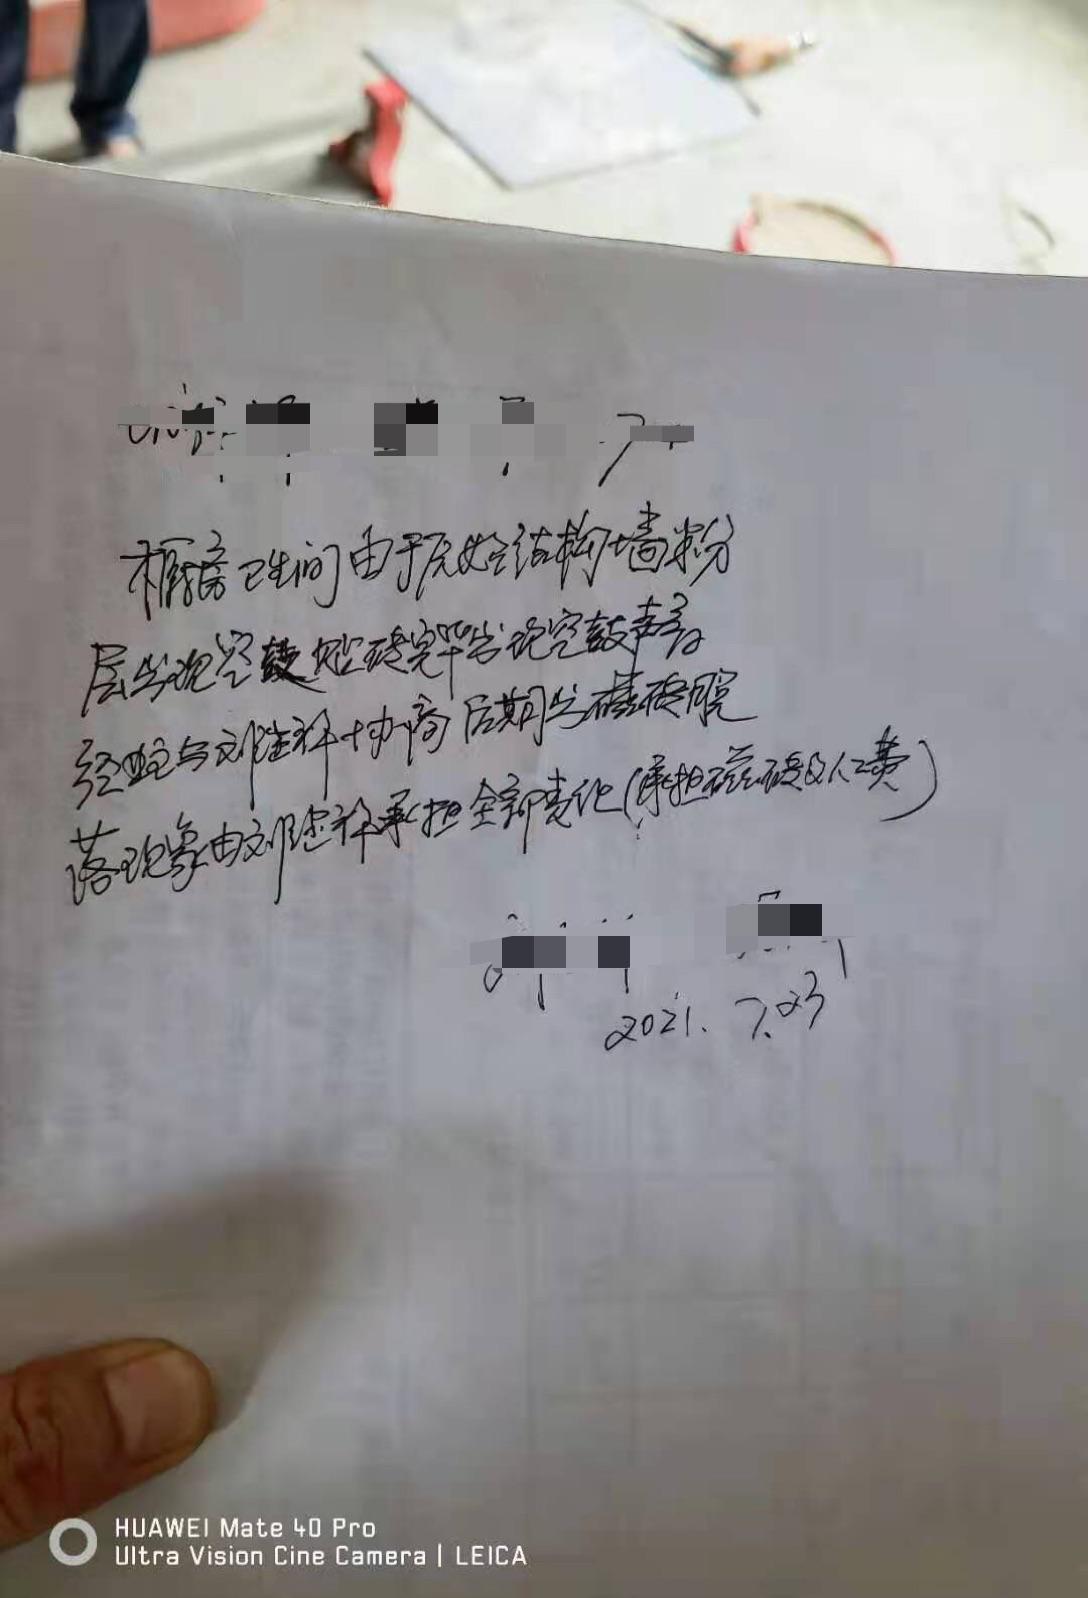 橱房卫生间由于原始结构墙粉
层出现空鼓 贴磁砖完毕出现空鼓声音
经 与刘 祥协商后期出磁砖脱
落现象由刘 祥承担全部责任(承担磁砖及人工费)
2021. 7.23
HUAWEI Mate 40 Pro
Ultra Vision Cine Camera | LEICA